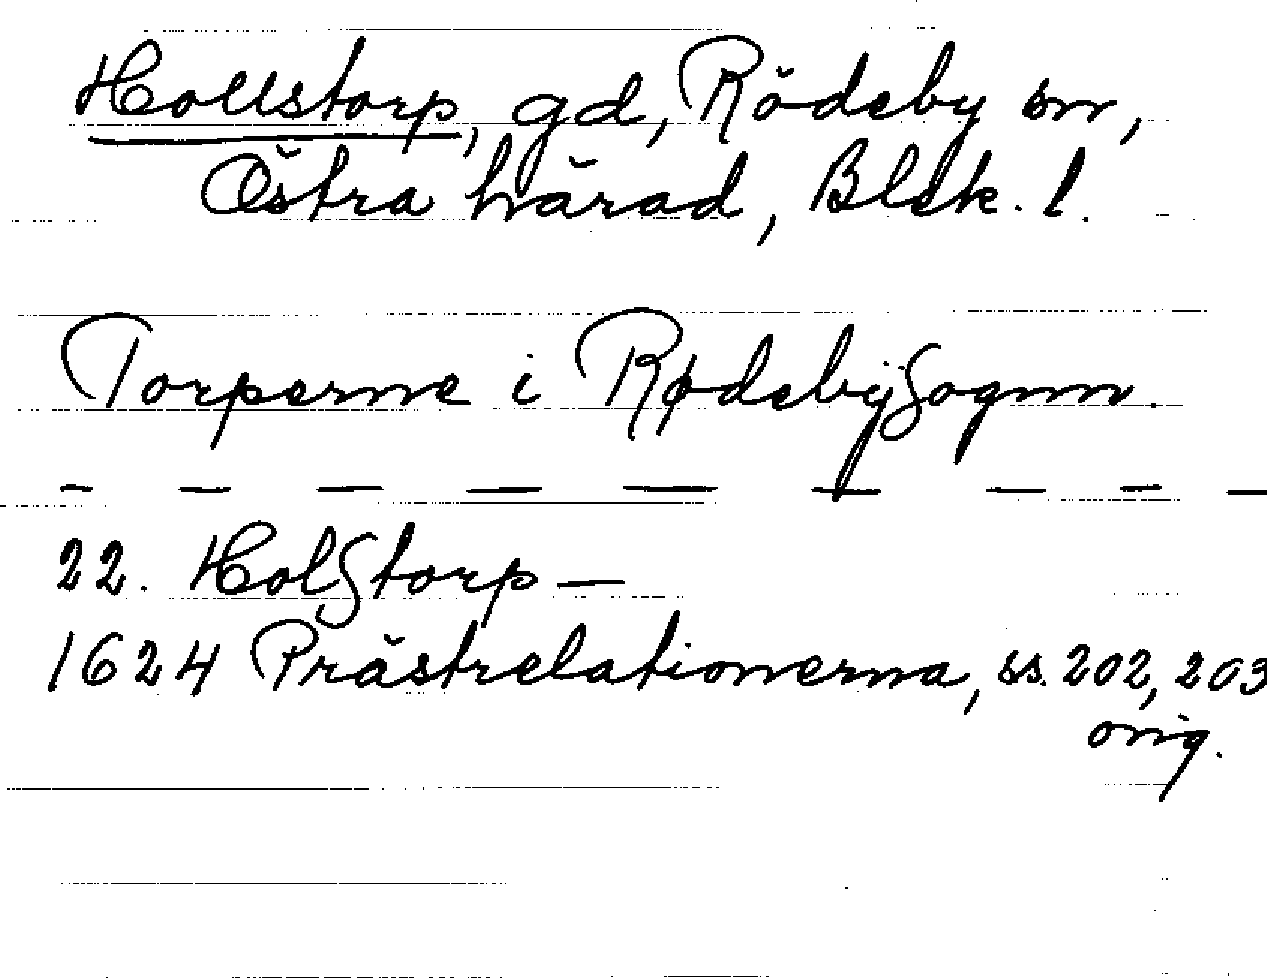 Hollstorp, gd, Rödeby sn,
Östra härad, Blek. l.
Torperne i Rødebÿ Sognn.
— — — — — — — — —
22. Holstorp —
1624 Prästrelationerna, ss. 202, 203
orig.